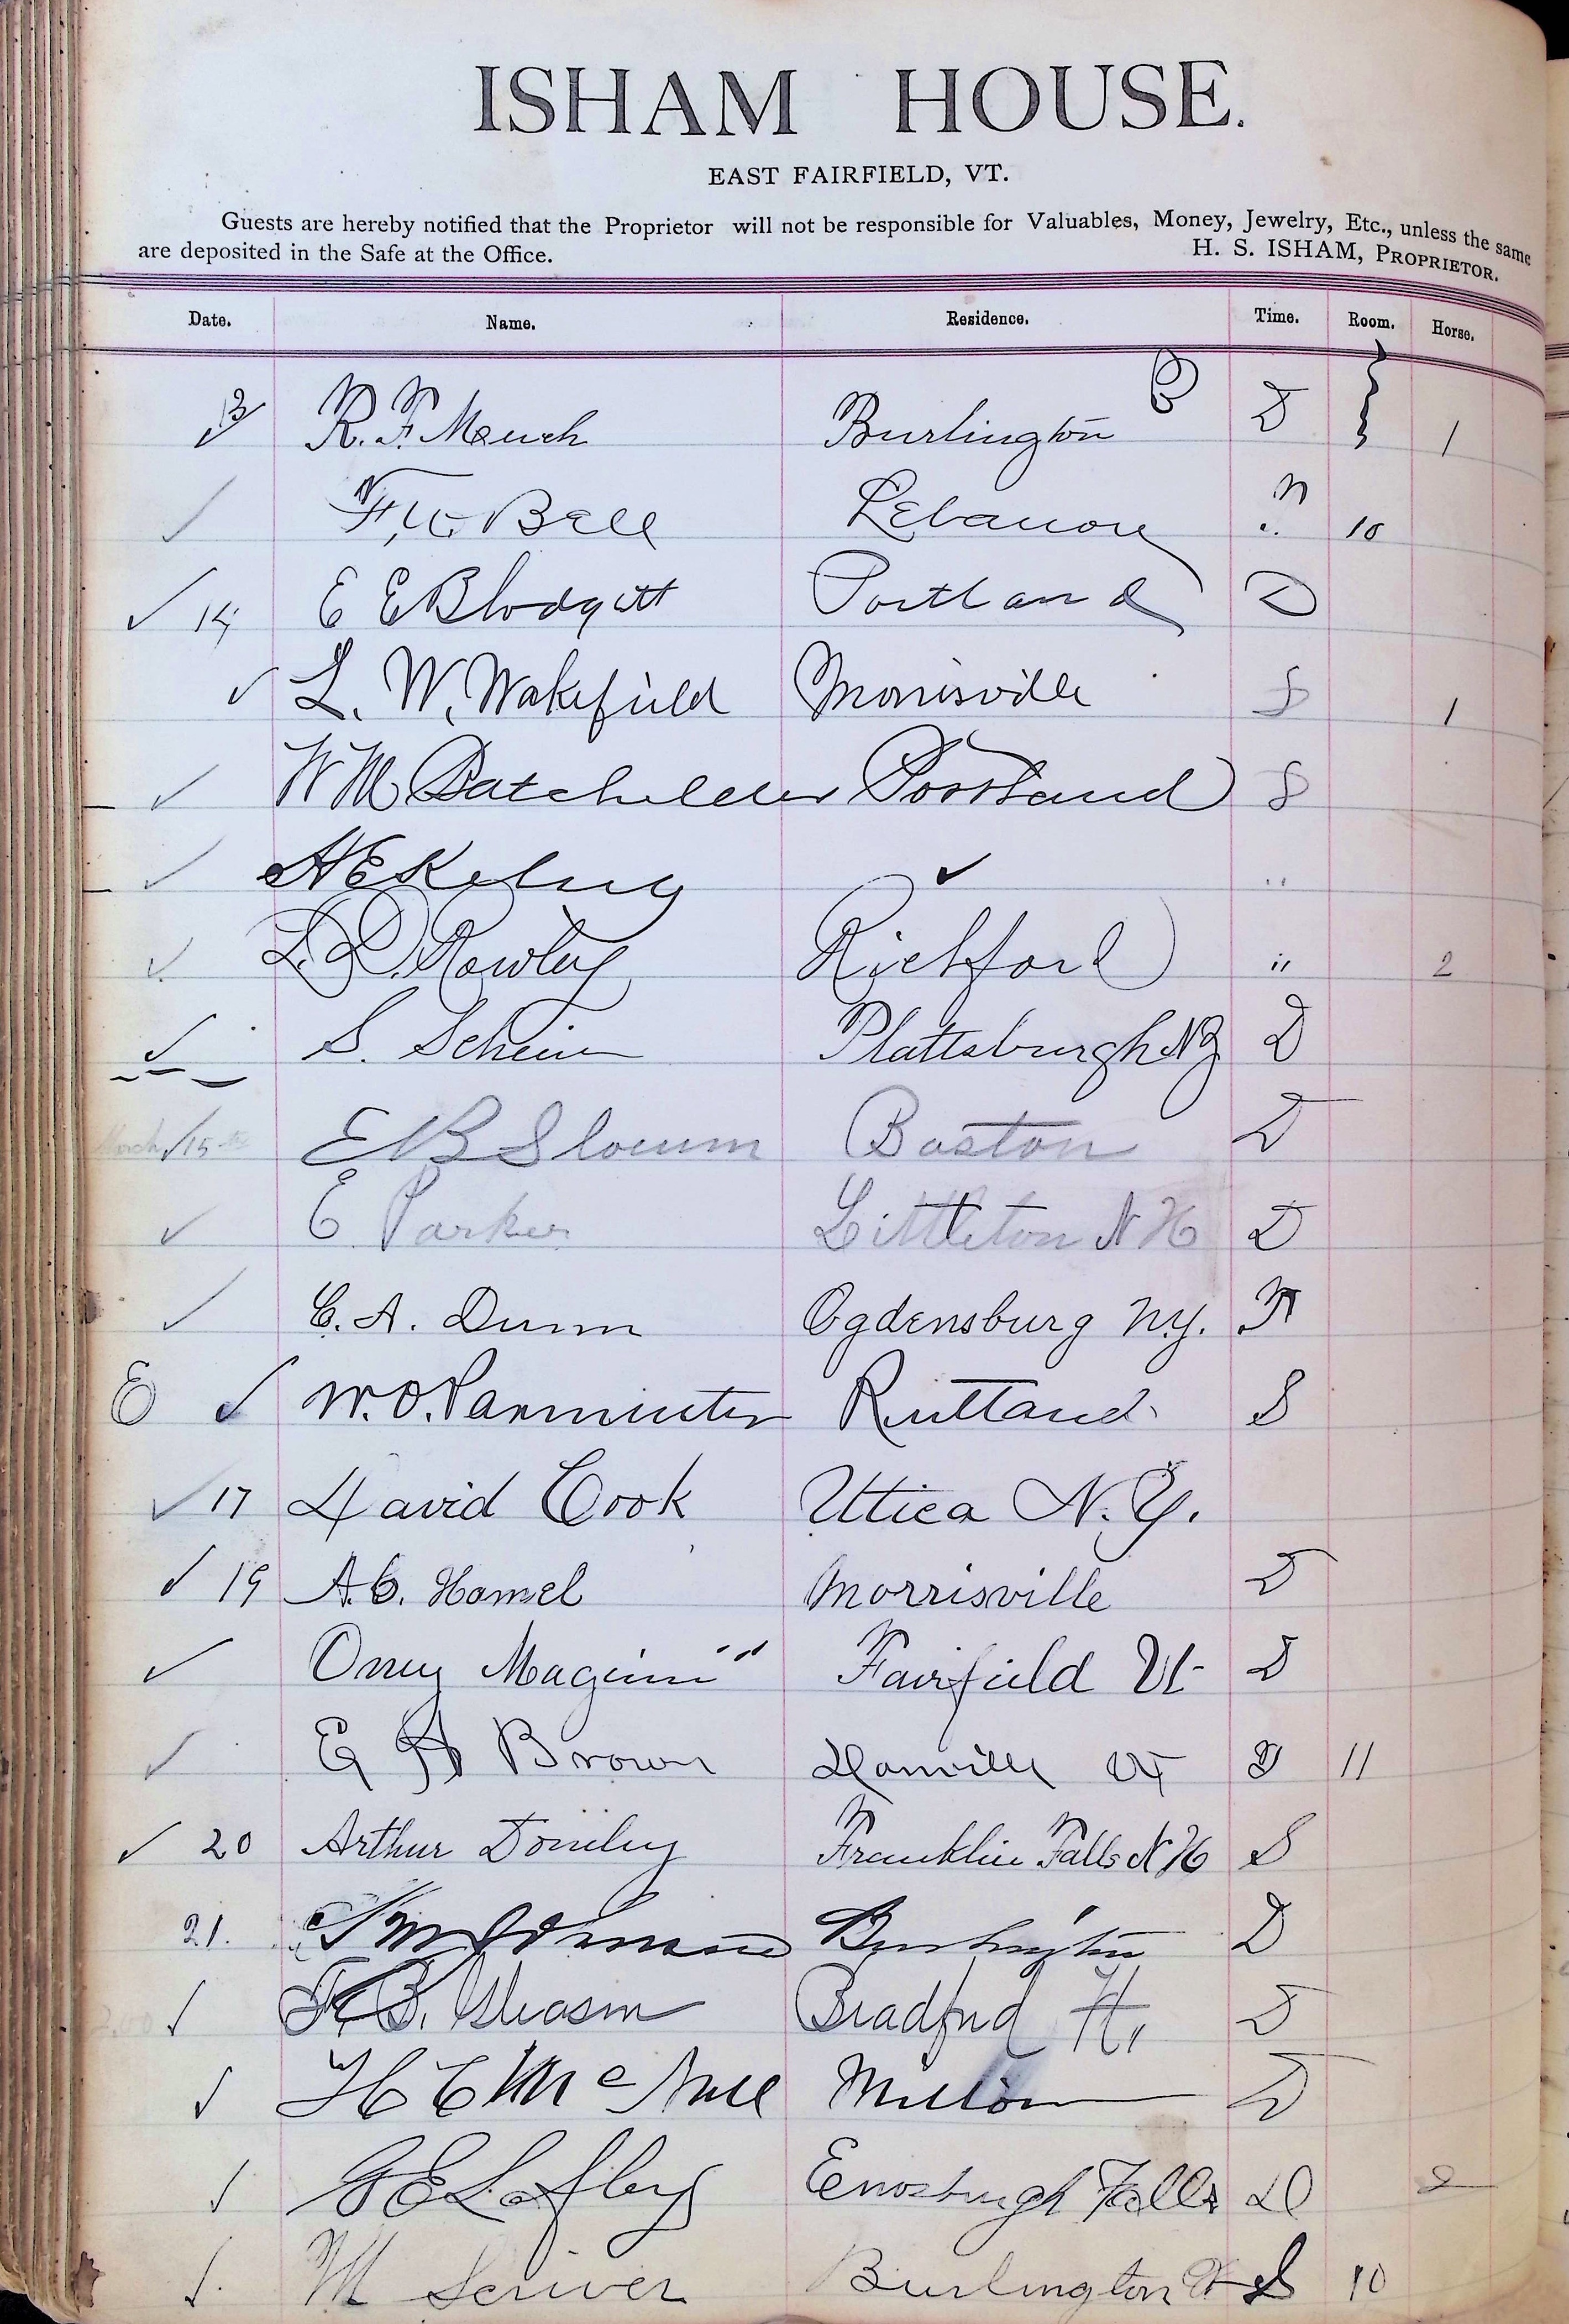 ISHAM HOUSE.
EAST FAIRFIELD, VT.
Guests are hereby notified that the Proprietor will not be responsible for Valuables, Money, Jewelry, Etc., unless the same
are deposited in the Safe at the Office. H. S. ISHAM, PROPRIETOR.
Date. Name. Residence. Time. Room. Horse.
R. F. Burlington D 1
Bell Lebanon 10
✓ 14 E E Blodgett Portland D
✓ L. W. Wakefield Morrisville S 1
✓ W M Batchelder Portland S
✓ ✓ "
✓ L. D. Rowley Richford " 2
✓ S. Plattsburgh NY D
March ✓ 15th E B Slocum Boston D
✓ E Parker Littleton N H D
✓ C. A. Dunn Ogdensburg N.Y.
E ✓ W. O. Parminter Rutland S
✓ 17 David Cook Uttica N. Y.
✓ 19 A. C. Hamel Morrisville D
✓ Fairfield Vt D
✓ E A Brown Danville Vt D 11
✓ 20 Arthur Franklin Falls N H S
21. Burlington D
✓ F. B. Gleason Bradford D
✓ H C Milton D
✓ G E Lafley Enosburgh Falls D 2
✓ M Scriver Burlington Vt S 10